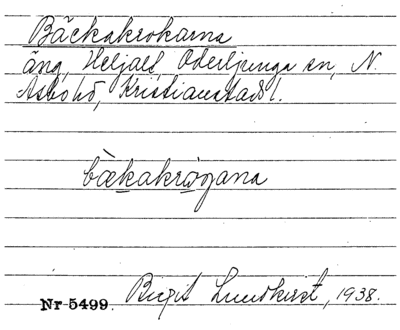 Bäckakrokarna
äng, Heljalt, Oderljunga sn, N.
Åsbo hd, Kristianstads l.
bækakrogana
Nr 5499 Birgit Lundkvist, 1938.